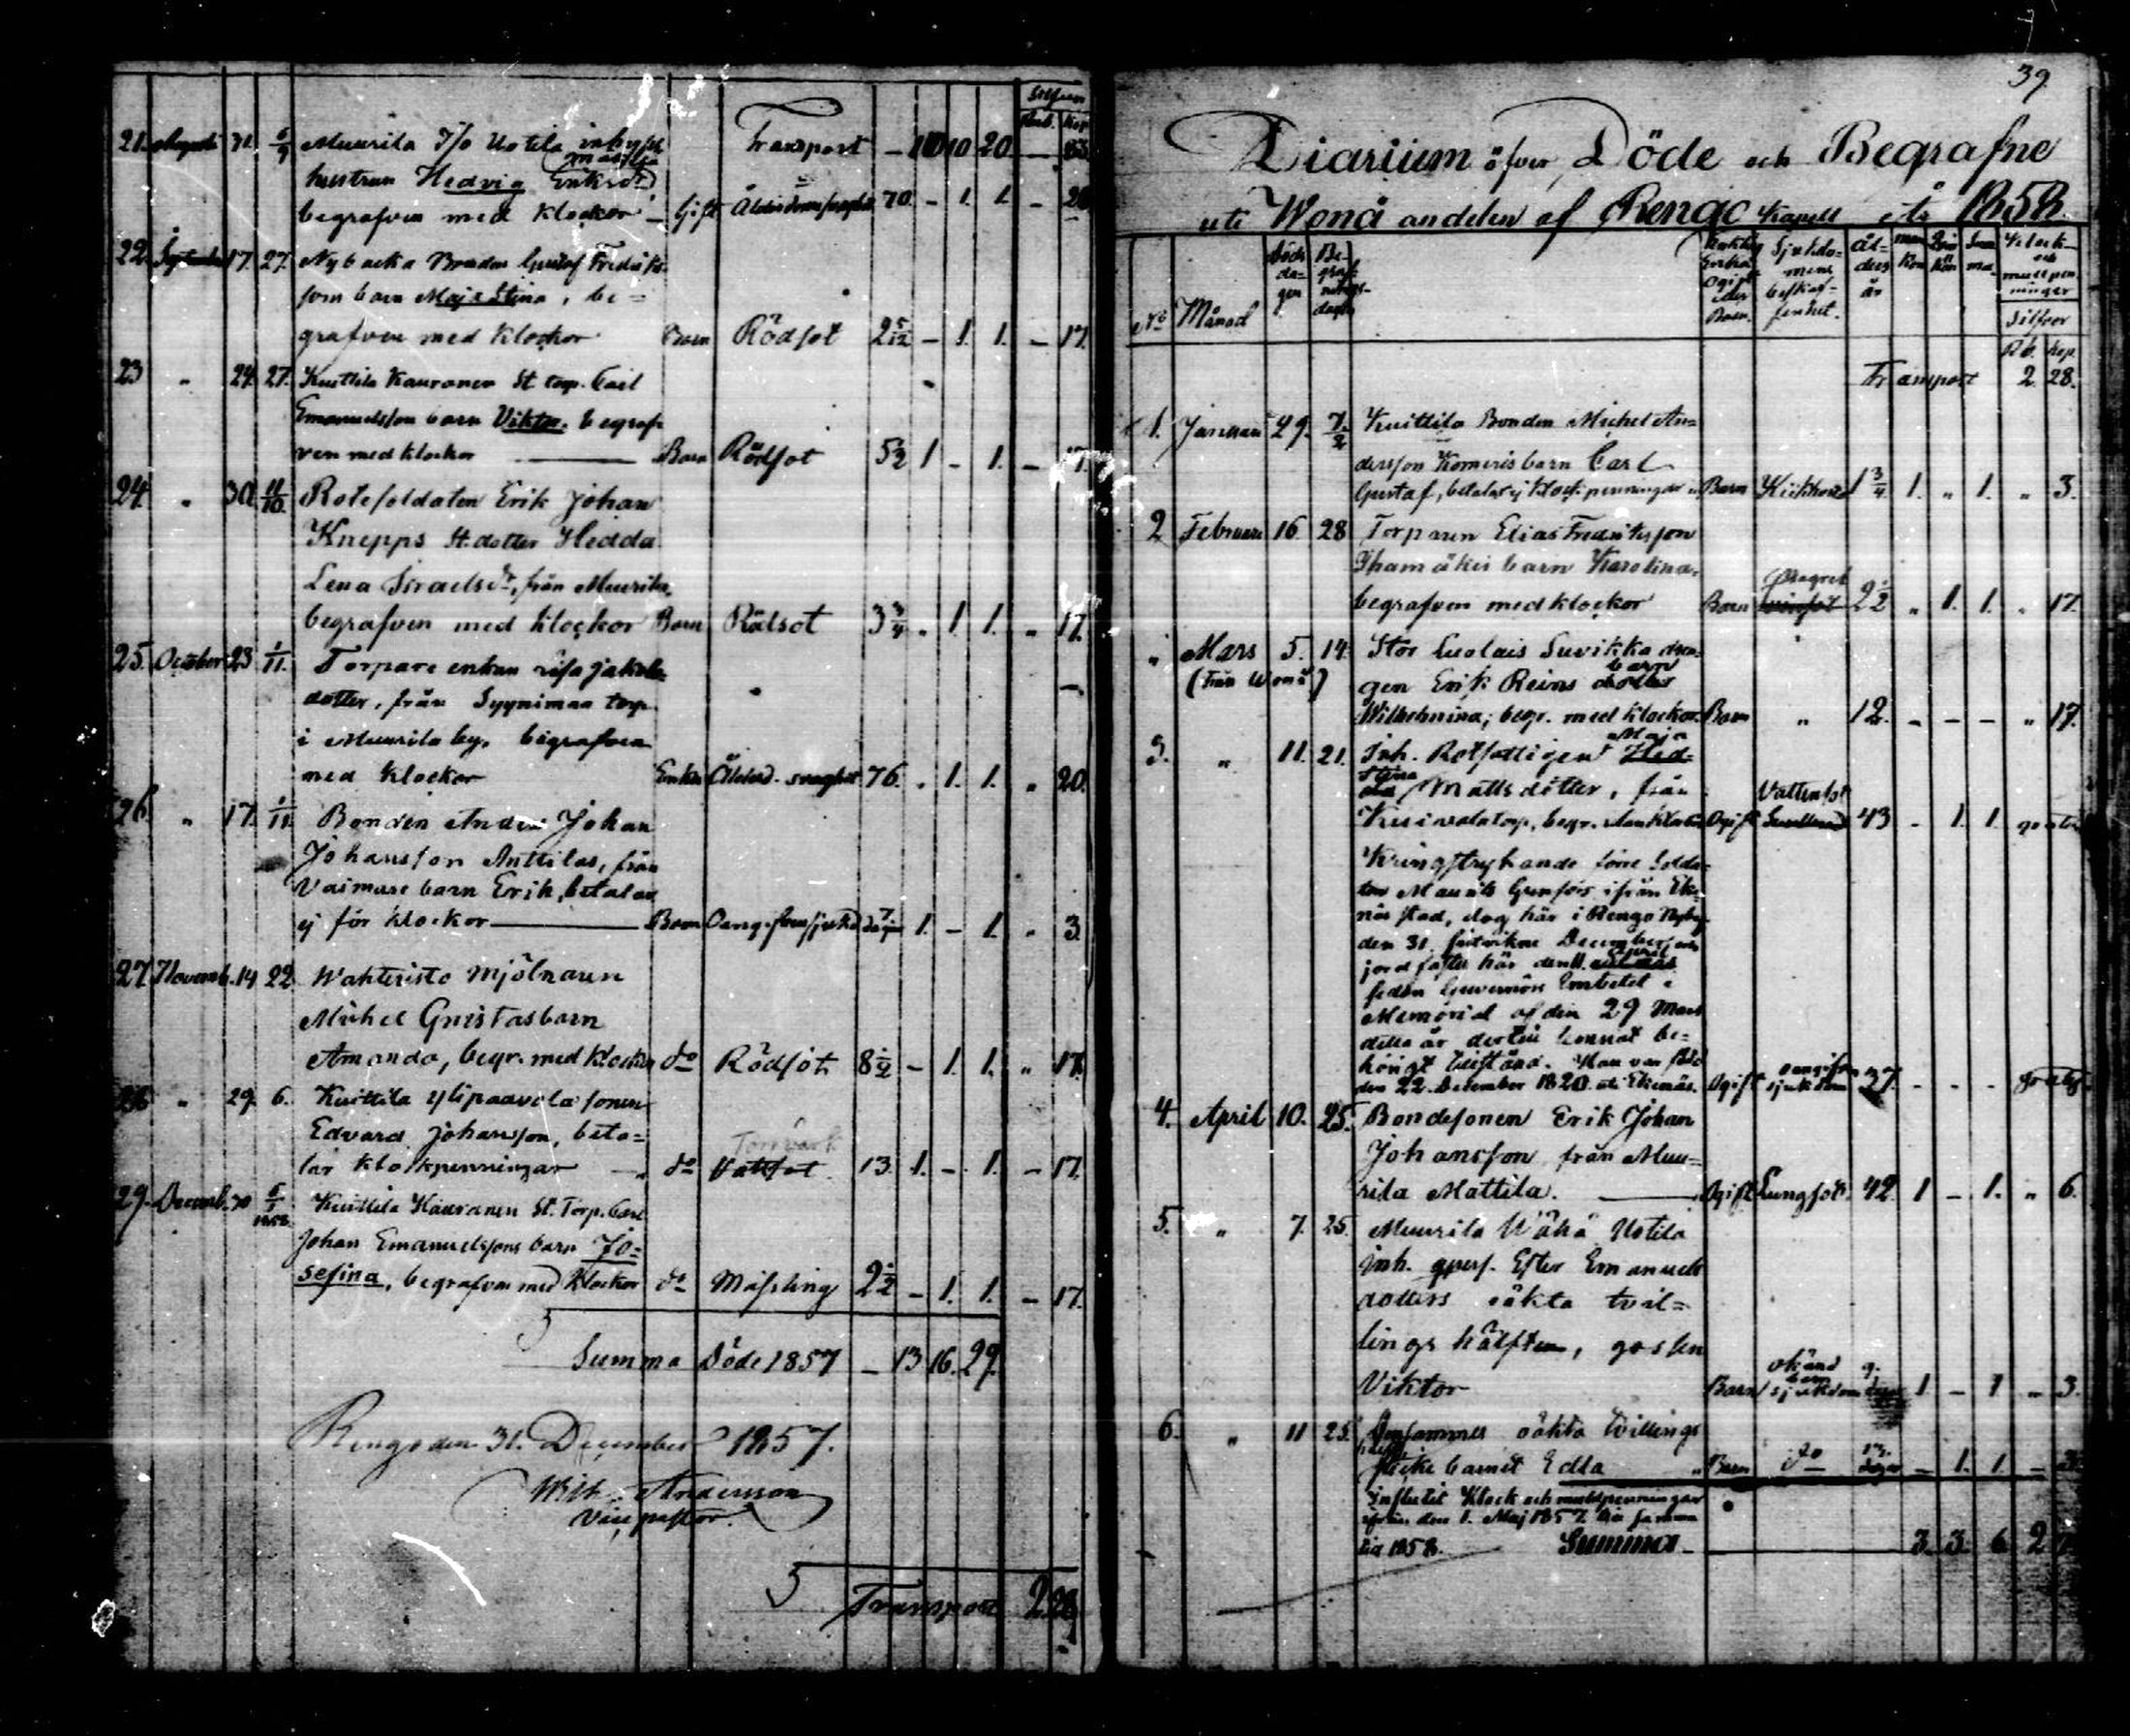 Silfver
Rub. Kop
Transport – 10 10 20 — 83
21. Augusti 31. 6/9 Muurila I/o Uotila inhyses
hustrun Hedvig Eriksdr
begrafven med klockor – Gift Ålderdomssvaghet 70 – 1. 1. – 20
22. September 17. 27. Nybacka Bonden Gustaf Fredriks
sons barn Maja Stina, be=
grafven med klockor Barn Rödsot 2 5/12 – 1. 1. – 17.
23 „ 24. 27. Kuittila Kauranen St. torp. Carl
Emanuelsson barn Viktor. begraf-
ven med klockor — Barn Rödsot 5 1/2 1 – 1. – 17.
24. „ 30. 11/10. Rotesoldaten Erik Johan
Knepps St. dotter Hedda
Lena Israelsdr, från Muurila,
begrafven med klockor Barn Rödsot 3 3/4 „ 1. 1. „ 17
25. October 23 1/11. Torpare enkan Lisa Jakobs
dotter, från Syynimaa torp
i Muurila by, begrafven
med klockor Enka Ålderd. svaghet 76. „ 1. 1. „ 20.
26. „ 17. 1/11. Bonden Anders Johan
Johansson Anttilas, från
Vaimare barn Erik, betalar
ej för klockor — Barn Oangifven sjukd. 7 dagar 1. – 1. „ 3
27. Novemb. 14 22. Wahteristo Mjölnaren
Michel Gnistas barn
Amanda, begr. med klockor do Rödsot 8 1/2 – 1. 1. „ 17.
28 „ 29. 6. Kuittila Ylipaavola sonen
Edvard Johansson, beta=
lar klockpenningar — do Vattsot 13. 1. – 1. – 17.
29. Decemb. 30 6/1 1858. Kuittila Kauranen St. Torp. Carl
Johan Emanuelssons barn Jo=
sefina, begrafven med klockor do Mässling 2 1/2 – 1. 1. – 17.
Summa Döde 1857 – 13 16. 29.
Rengo den 31. December 1857.
Wilh. Andersson
Vice pastor.
Transport 2.28
39.
Diarium öfver Döde och Begrafne
uti Wonå andelen af Rengo Kapell år 1858.
No Månad Döds da= gen Be= graf- nings- dagen Enkling Enka Ogift eller Barn. Sjukdo= mens beskaf= fenhet. Ål= ders år man kön Qvin kön Sum ma. Klock och mullpen ningar
Silfver
Rb. kop.
Transport 2. 28.
1. Januari 29. 7/2 Kuittila Bonden Michel An=
dersson Komeris barn Carl
Gustaf, betalar ej klockpenningar Barn Kikhosta 1 3/4 1. „ 1. „ 3.
2 Februari 16 28 Torparen Elias Fredriksson
Ihamäkis barn Karolina,
begrafven med klockor Barn 2 1/2 „ 1. 1. „ 17.
„ Mars 5. 14. Stor Luolais Suvikka drän=
(från Wonå) gen Erik Reins barn
Wilhelmina; begr. med klockor. Barn „ 12. – – – „ 17.
3. „ 11. 21. Inh. Rotfattigen Maja
Stina Mattsdotter, från
torp, begr. utan klockor Ogift Vattusot 43 – 1. 1. gratis
Kringstrykande förre Solda=
ten Maurits Grenfors ifrån Eke=
näs stad, dog här i Rengo Nyby
den 31. sistvikne December och
jordfästes här den 11. April
sedan Guvernörs Embetet i
Memorial af den 29 Mars
detta år dertill lemnat be=
hörigt tillstånd. Han var född
den 22. December 1820. uti Ekenäs. Ogift oangifven sjukdom 37. – – – gratis
4. April 10. 25. Bondesonen Erik Johan
Johansson från Muu=
rila Mattila. — Ogift Lungsot. 42. 1 – 1. „ 6.
5. „ 7. 25. Muurila Wähä Uotila
inh. qpers. Ester Emanuels
dotters oäkta tvil=
lings hälften, gossen
Viktor Barn okänd barn sjukdom 9. dagar 1 – 1 „ 3.
6. „ 11 25. Densammes oäkta tvillings
flicke barnet Edla „ Barn do 13. dagar – 1. 1. –
Influtit klock och mullpenningar
ifrån den 1. Maj 1857 till samma
tid 1858. Summa — 3. 3. 6. 2